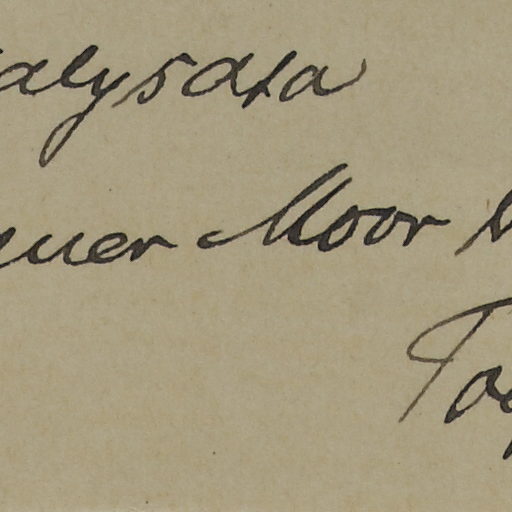 alysata
uer Moor
To